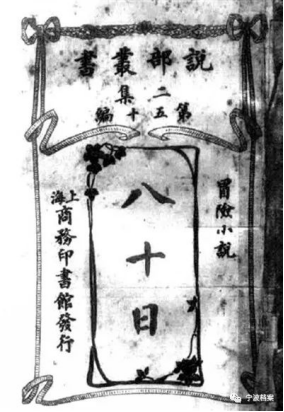 說部叢書
二集
第五十編
冒險小說
八十日
上海商務印書館發行
宁波档案